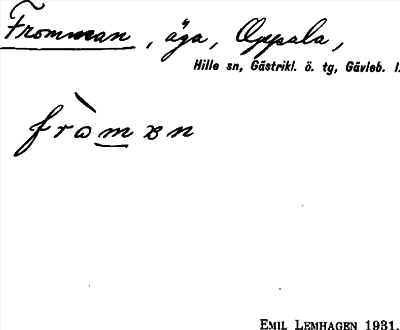 Fromman, äga, Oppala,
Hille sn, Gästrikl. ö. tg, Gävleb. l.
fròmən
EMIL LEMHAGEN 1931.